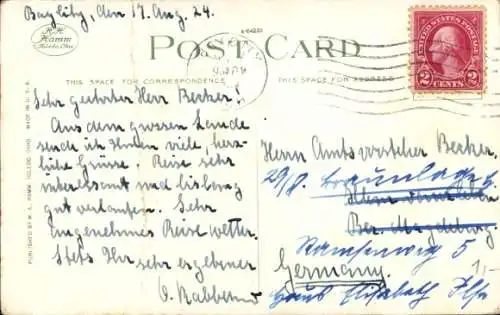 den 17. Aug. 24.
H.H.
Hamm
Toledo, Ohio
POST CARD
THIS SPACE FOR CORRESPONDENCE
THIS SPACE FOR ADDRESS
UNITED STATES POSTAGE
2 CENTS 2
MADE IN U.S.A.
PUBLISHED BY H. H. HAMM, TOLEDO, OHIO
Sehr geehrter Herr Becker!
Aus dem grossen Lande
sende ich Ihnen viele, herz-
liche Grüsse. Reise sehr
interessant und bislang
gut verlaufen. Sehr
angenehmes Reise wetter.
Stets Ihr
sehr ergebener
Herrn Amtsvorsteher Becker.
29/8. Braunlage
Bez. Magdeburg
5
Germany.
Haus Elisabeth Ilse
1,-